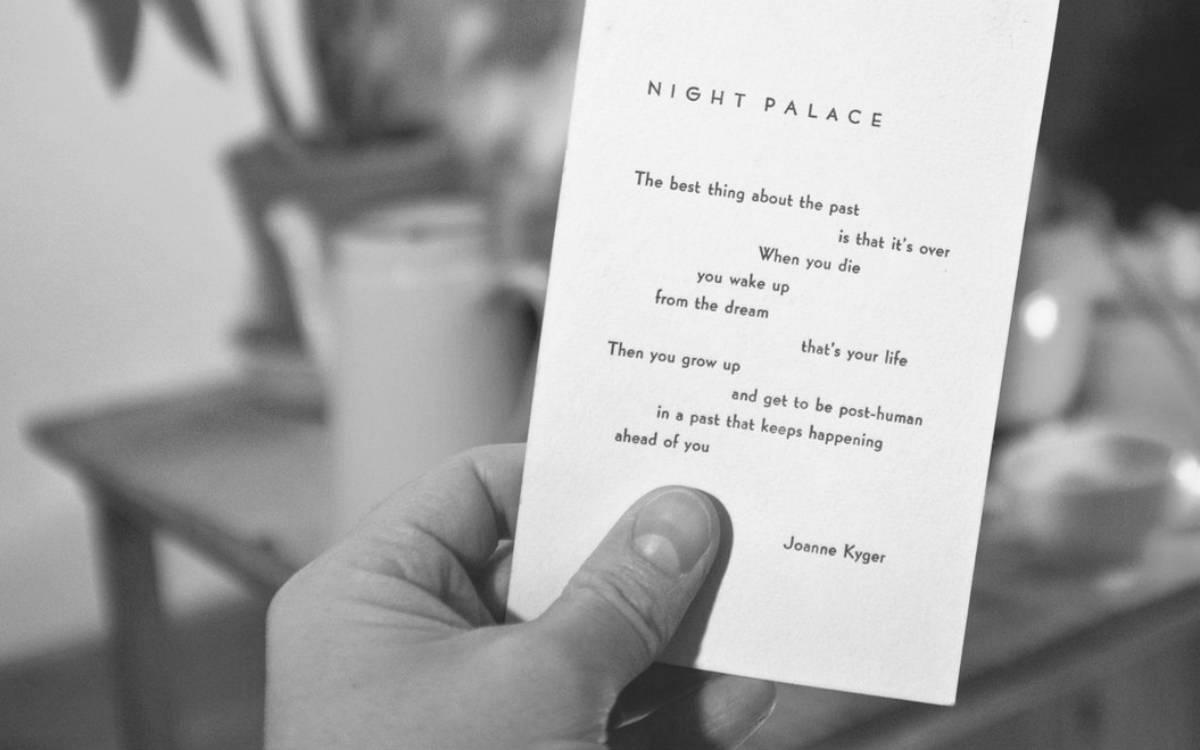 NIGHT PALACE
The best thing about the past
is that it's over
When you die
you wake up
from the dream
that's your life
Then you grow up
and get to be post-human
in a past that keeps happening
ahead of you
Joanne Kyger